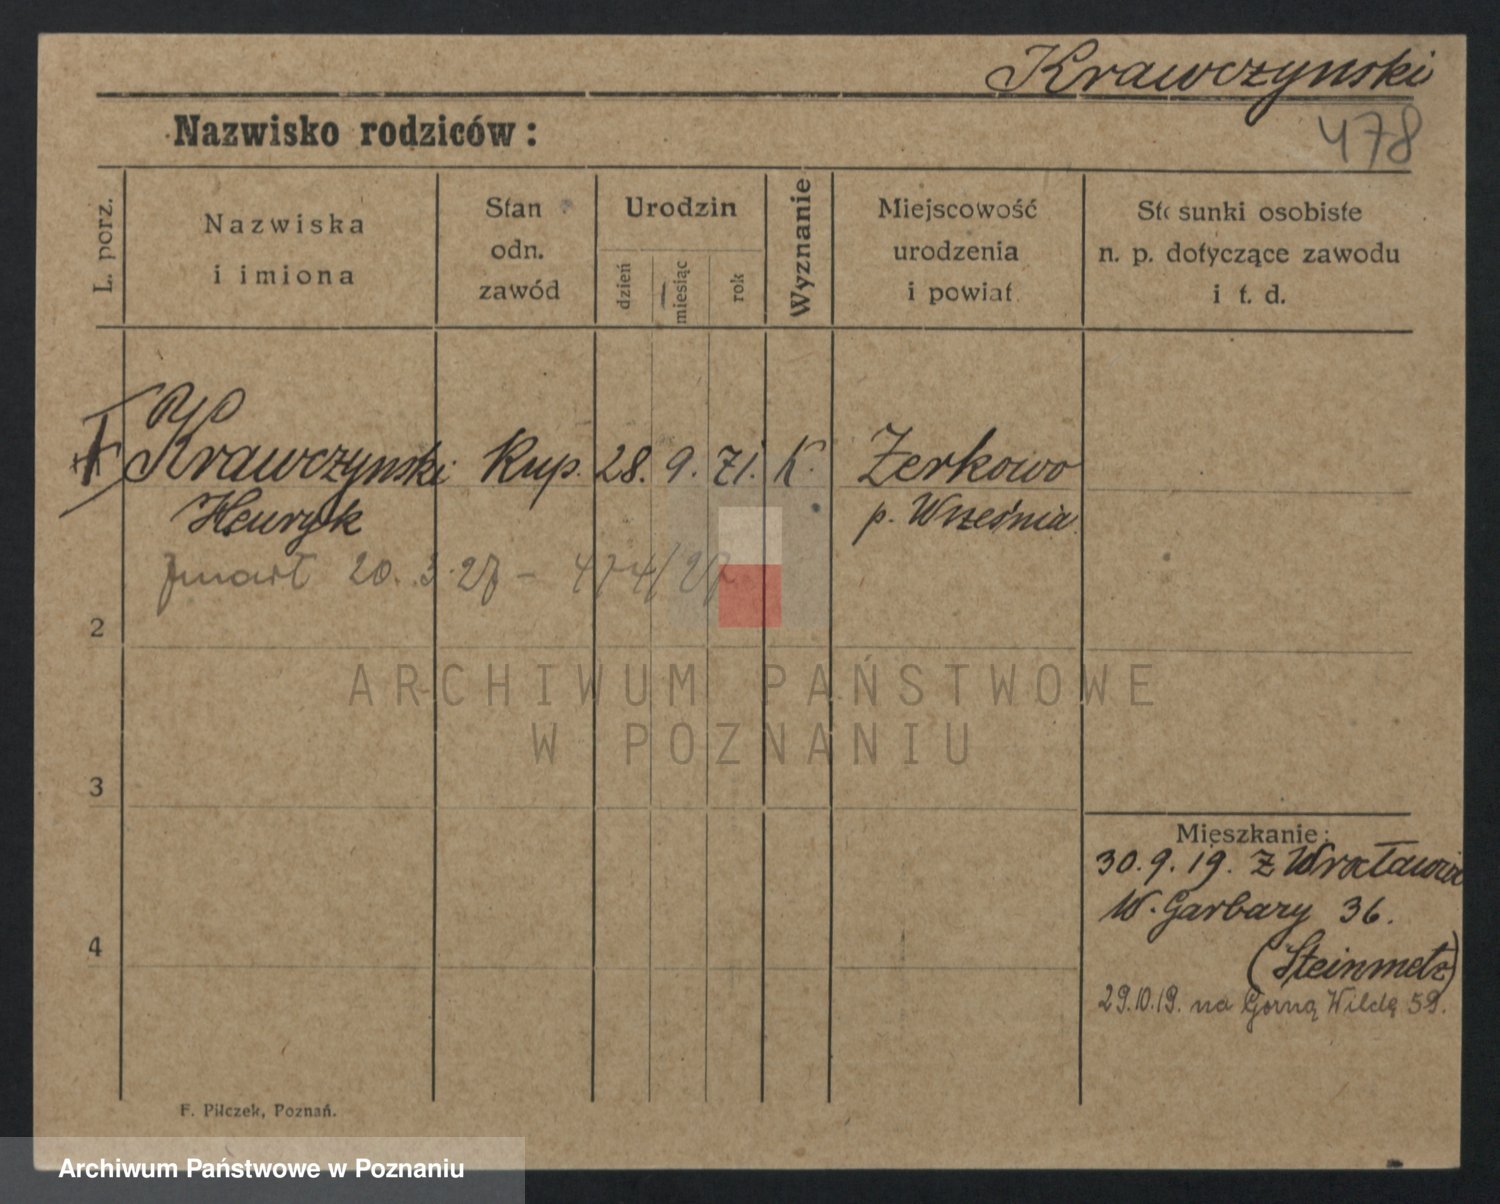 Krawczynski
478
Nazwisko rodziców:
L. porz.
Nazwiska
i imiona
Stan
odn.
zawód
Urodzin
dzień
miesiąc
rok
Wyznanie
Miejscowość
urodzenia
i powiat
Stosunki osobiste
n. p. dotyczące zawodu
i t. d.
Krawczynski Kup. 28. 9. 71. K. Zerkowo
Henryk p. Września
zmarł 20.3.27 - 474/27
2
ARCHIWUM PAŃSTWOWE
W POZNANIU
3
Mieszkanie:
30.9.19. z Wrocławia
W. Garbary 36.
4
(Steinmetz)
29.10.19. na Górną Wildę 59.
F. Pilczek, Poznań.
Archiwum Państwowe w Poznaniu